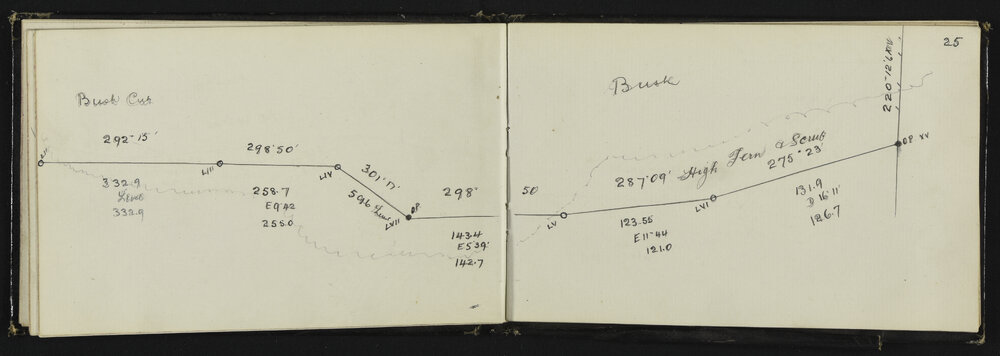 Bush Cut
292-15'
LII
LIII
332.9
Level
332.9
298°50'
LIV
258.7
E 9°42
255.0
301°17'
59.6 Level
OP
LVII
298° 50'
143.4
E 5°39'
142.7
25
Bush
High Fern & Scrub
287°09'
LV
123.55
E 11-44
121.0
LVI
275°23'
131.9
D 16°11'
126.7
OP XV